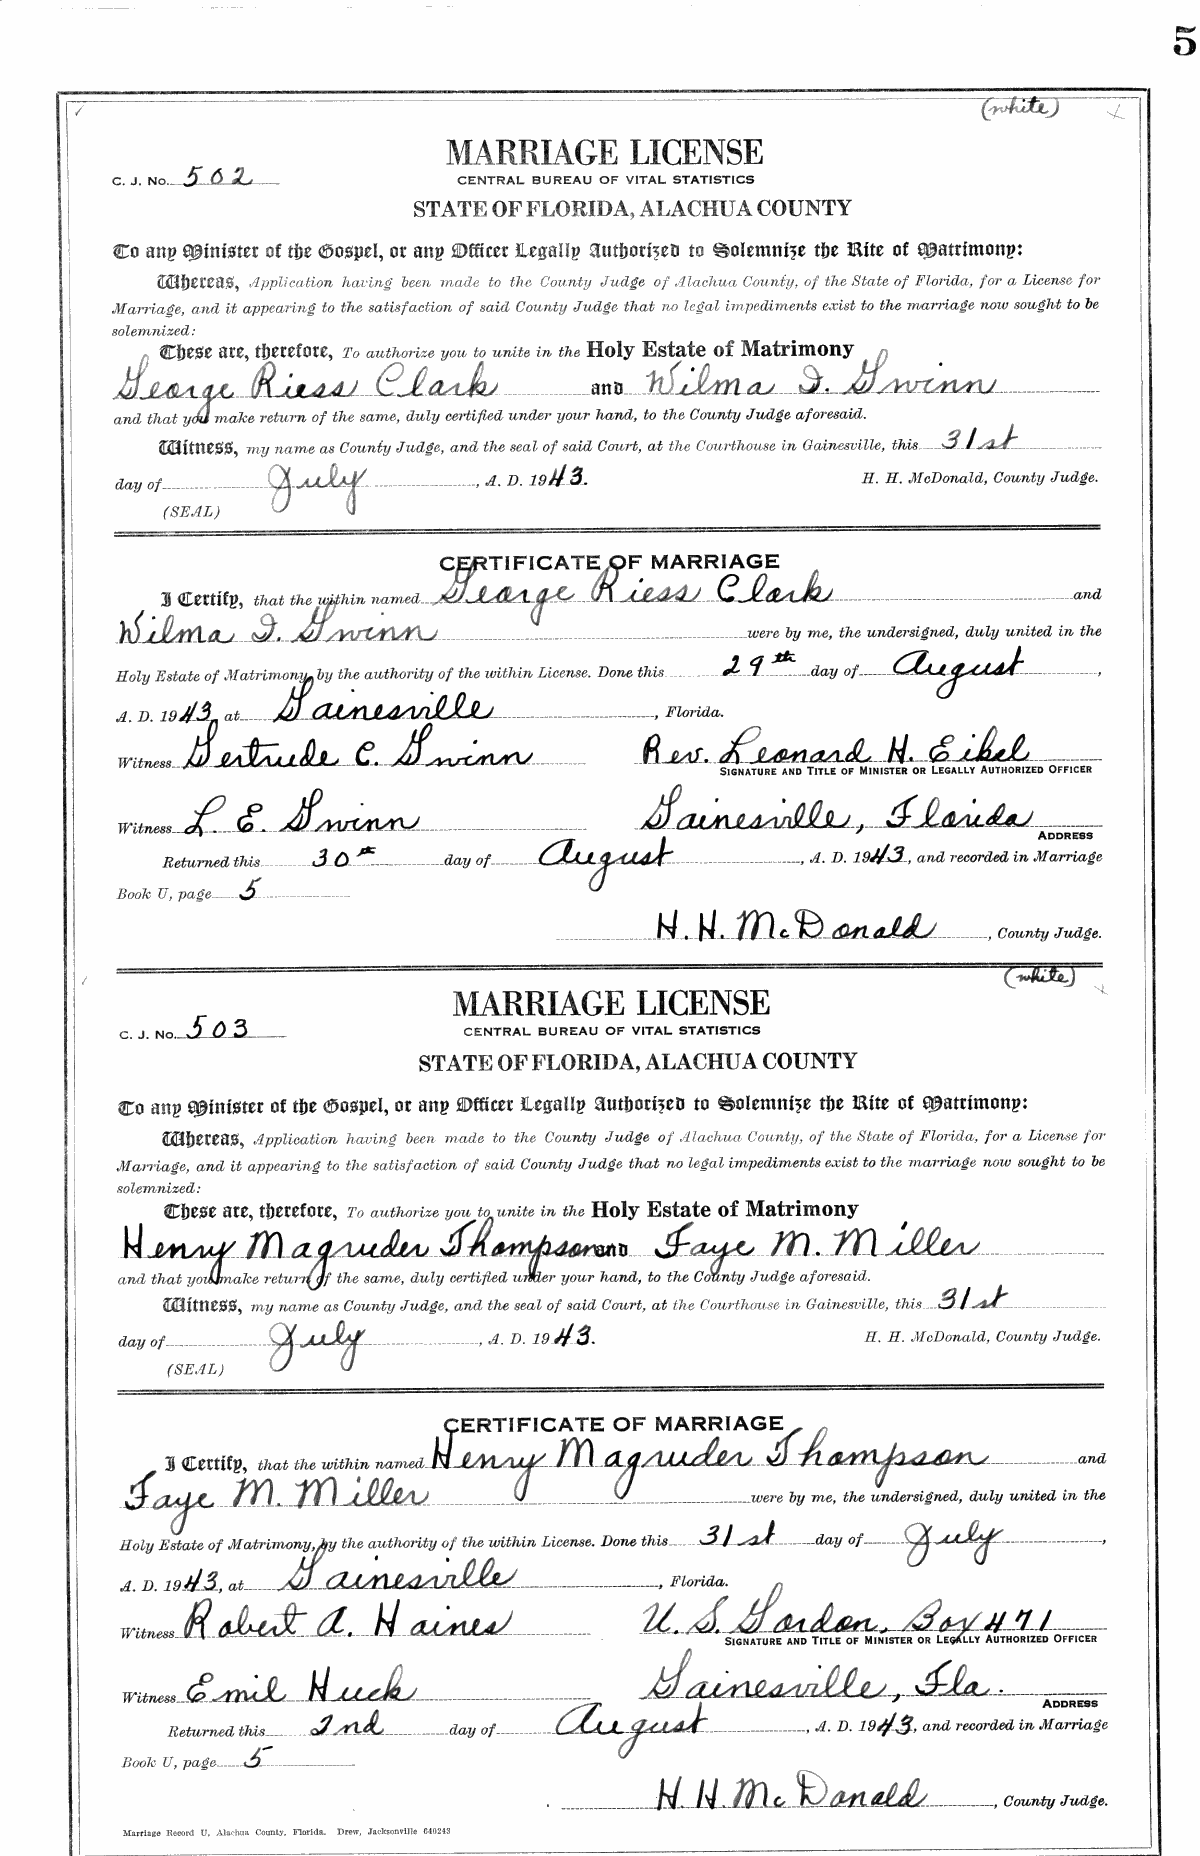 5
(white)
MARRIAGE LICENSE
C. J. No. 502
CENTRAL BUREAU OF VITAL STATISTICS
STATE OF FLORIDA, ALACHUA COUNTY
To any Minister of the Gospel, or any Officer Legally Authorized to Solemnize the Rite of Matrimony:
Whereas, Application having been made to the County Judge of Alachua County, of the State of Florida, for a License for
Marriage, and it appearing to the satisfaction of said County Judge that no legal impediments exist to the marriage now sought to be
solemnized:
These are, therefore, To authorize you to unite in the Holy Estate of Matrimony
George Riess Clark and Wilma I. Gwinn
and that you make return of the same, duly certified under your hand, to the County Judge aforesaid.
Witness, my name as County Judge, and the seal of said Court, at the Courthouse in Gainesville, this 31st
day of July, A. D. 1943. H. H. McDonald, County Judge.
(SEAL)
CERTIFICATE OF MARRIAGE
I Certify, that the within named George Riess Clark and
Wilma I. Gwinn were by me, the undersigned, duly united in the
Holy Estate of Matrimony, by the authority of the within License. Done this 29th day of August,
A. D. 1943, at Gainesville, Florida.
Witness Gertrude C. Gwinn Rev. Leonard H. Eikel
SIGNATURE AND TITLE OF MINISTER OR LEGALLY AUTHORIZED OFFICER
Witness L. E. Gwinn Gainesville, Florida
ADDRESS
Returned this 30th day of August, A. D. 1943, and recorded in Marriage
Book U, page 5
H. H. McDonald, County Judge.
(white)
MARRIAGE LICENSE
C. J. No. 503
CENTRAL BUREAU OF VITAL STATISTICS
STATE OF FLORIDA, ALACHUA COUNTY
To any Minister of the Gospel, or any Officer Legally Authorized to Solemnize the Rite of Matrimony:
Whereas, Application having been made to the County Judge of Alachua County, of the State of Florida, for a License for
Marriage, and it appearing to the satisfaction of said County Judge that no legal impediments exist to the marriage now sought to be
solemnized:
These are, therefore, To authorize you to unite in the Holy Estate of Matrimony
Henry Magruder Thompson and Faye M. Miller
and that you make return of the same, duly certified under your hand, to the County Judge aforesaid.
Witness, my name as County Judge, and the seal of said Court, at the Courthouse in Gainesville, this 31st
day of July, A. D. 1943. H. H. McDonald, County Judge.
(SEAL)
CERTIFICATE OF MARRIAGE
I Certify, that the within named Henry Magruder Thompson and
Faye M. Miller were by me, the undersigned, duly united in the
Holy Estate of Matrimony, by the authority of the within License. Done this 31st day of July,
A. D. 1943, at Gainesville, Florida.
Witness Robert A. Haines U. S. Gordon, Box 471
SIGNATURE AND TITLE OF MINISTER OR LEGALLY AUTHORIZED OFFICER
Witness Emil Huck Gainesville, Fla.
ADDRESS
Returned this 2nd day of August, A. D. 1943, and recorded in Marriage
Book U, page 5
H. H. McDonald, County Judge.
Marriage Record U, Alachua County, Florida. Drew, Jacksonville 640243